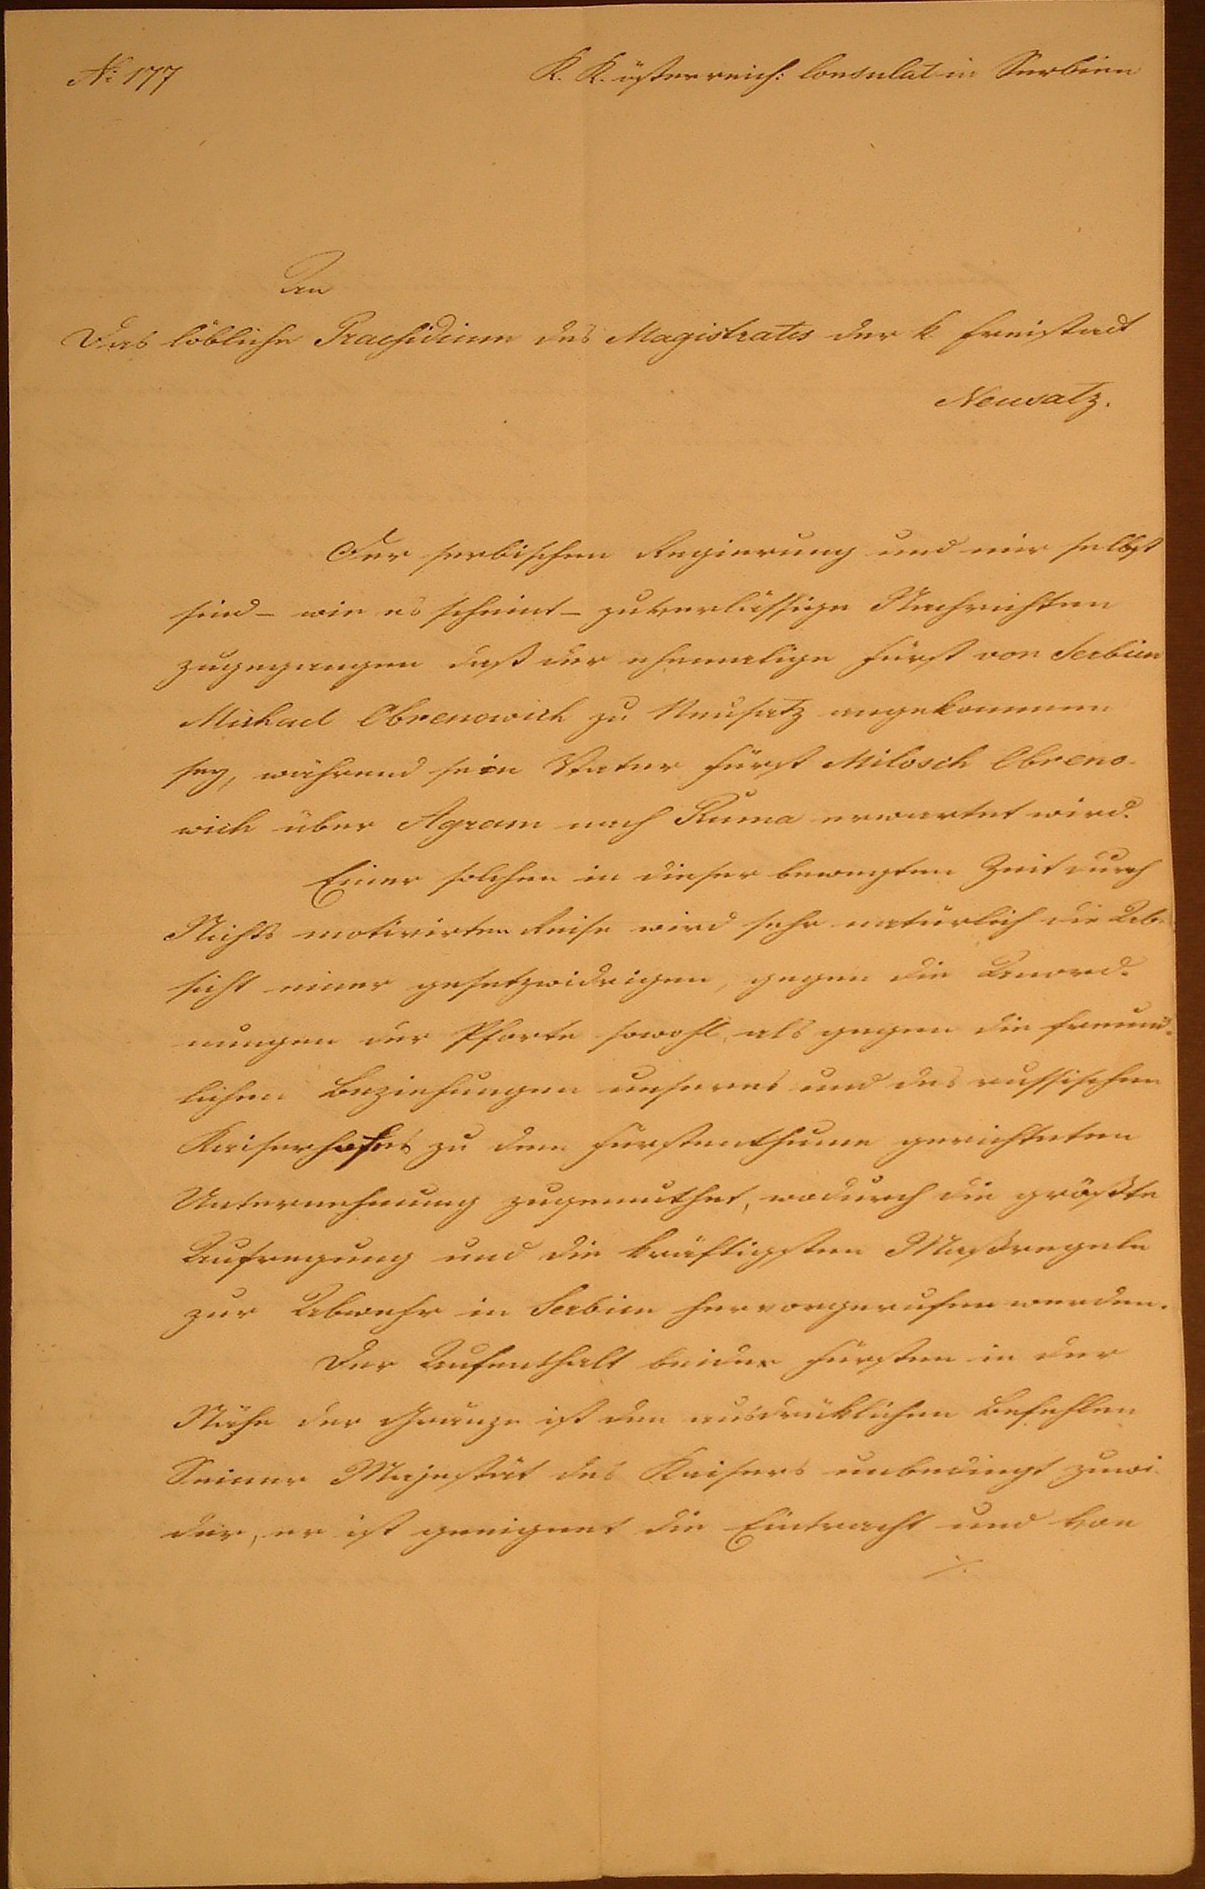 № 177
K. K. österreich: Consulat in Serbien
An
Das löbliche Praesidium des Magistrates der k. Freistadt
Neusatz.
Der serbischen Regierung und mir selbst
sind – wie es scheint – zuverlässige Nachrichten
zugegangen daß der ehemalige Fürst von Serbien
Michael Obrenowich zu Neusatz angekommen
sey, während sein Vater Fürst Milosch Obreno-
wich über Agram nach Ruma erwartet wird.
Einer solchen in dieser bewegten Zeit durch
Nichts motivirten Reise wird sehr natürlich die Ab-
sicht einer gesetzwidrigen, gegen die Anord-
nungen der Pforte sowohl, als gegen die freund-
lichen Beziehungen unseres und des russischen
Kaiserhofes zu dem Fürstenthume gerichteten
Unternehmung zugemuthet, wodurch die größte
Aufregung und die kräftigsten Maßregeln
zur Abwehr in Serbien hervorgerufen werden.
Der Aufenthalt beider Fürsten in der
Nähe der Gränze ist den ausdrücklichen Befehlen
Seiner Majestät des Kaisers unbedingt zuwi-
der, er ist geeignet die Eintracht und von
./.